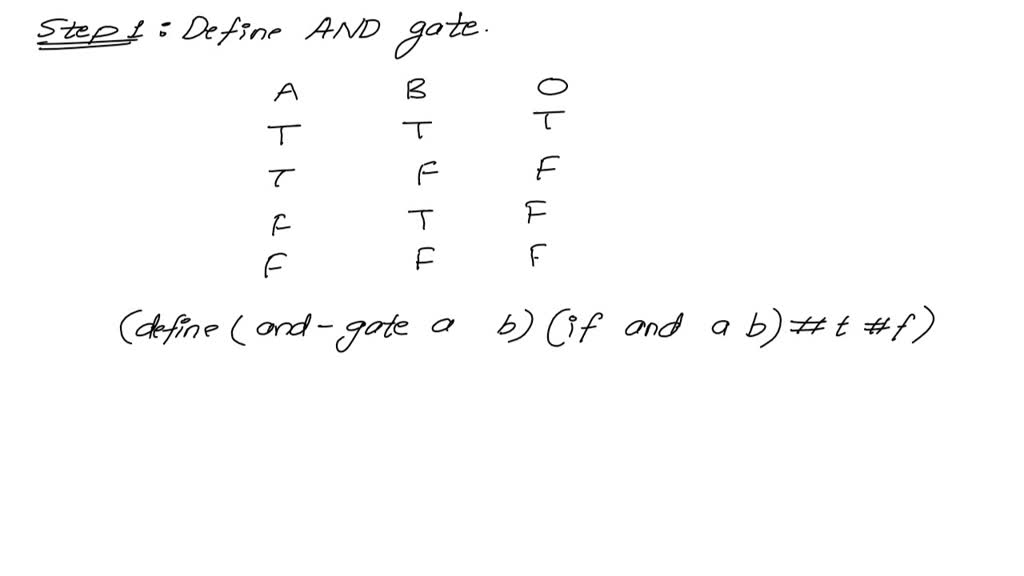 Step 1 : Define AND gate.
A B O
T T T
T F F
F T F
F F F
(define ( and-gate a b) (if and a b) #t #f)